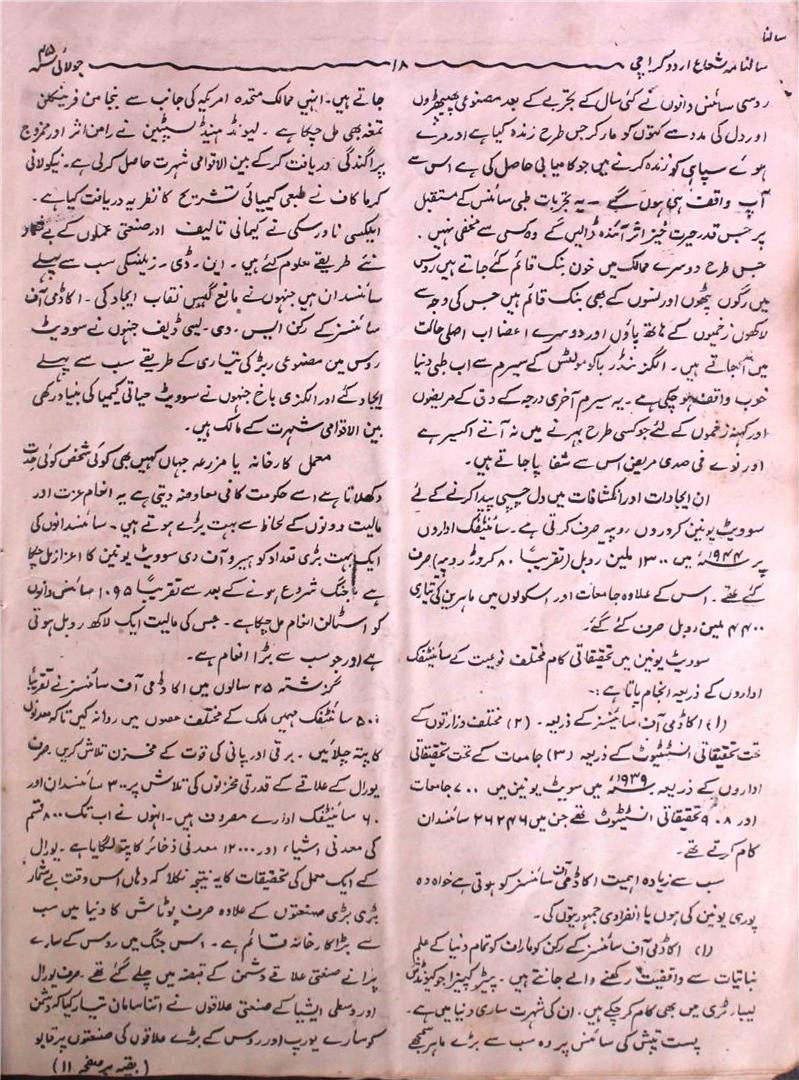 سالنا
سالنامہ شعاع اردو کراچی
۱۸
جولائی ۴۵ء
روسی سائنس دانوں نے کئی سال کے تجربے کے بعد مصنوعی پھیپھڑوں
اور دل کی مدد سے کتوں کو مار کر جس طرح زندہ کیا ہے اور مرے
ہوئے سپاہی کو زندہ کرنے میں جو کامیابی حاصل کی ہے اس سے
آپ واقف ہی ہوں گے۔ یہ تجربات طبی سائنس کے مستقبل
پر جس قدر حیرت خیز اثر آئندہ ڈالیں گے وہ کسی سے مخفی نہیں۔
جس طرح دوسرے ممالک میں خون بنک قائم کئے جاتے ہیں روس
میں رگوں پٹھوں اور نسوں کے بھی بنک قائم ہیں جس کی وجہ سے
لاکھوں زخمیوں کے ہاتھ پاؤں اور دوسرے اعضا اب اصلی حالت
میں آجاتے ہیں۔ الگزنڈر باگومولٹس کے سیرم سے اب طبی دنیا
خوب واقف ہو چکی ہے۔ یہ سیرم آخری درجہ کے دق کے مریضوں
اور کہنہ زخموں کے لئے جو کسی طرح بہرنے میں نہ آتے اکسیر ہے
اور نوے فی صدی مریض اس سے شفا پا جاتے ہیں۔
ان ایجادات اور انکشافات میں دل چسپی پیدا کرنے کے لئے
سوویٹ یونین کروروں روپیہ صرف کرتی ہے۔ سائنٹفک اداروں
پر ۱۹۴۴ء میں ۱۳۰۰ ملین روبل (تقریباً ۸۰ کروڑ روپیہ) صرف
کئے گئے۔ اس کے علاوہ جامعات اور اسکولوں میں ماہرین کی تیاری
۴۴۰۰ ملین روبل صرف کئے گئے۔
سوویٹ یونین میں تحقیقاتی کام مختلف نوعیت کے سائنٹفک
اداروں کے ذریعہ انجام پاتا ہے:۔
(۱) اکاڈمی آف سائنسز کے ذریعہ۔ (۲) مختلف وزارتوں کے
تحت تحقیقاتی انسٹیٹوٹ کے ذریعہ (۳) جامعات کے تحت تحقیقاتی
اداروں کے ذریعہ ۱۹۳۹ء میں سویٹ یونین میں ۷۰۰ جامعات
اور ۹۰۸ تحقیقاتی انسٹیٹوٹ تھے جن میں ۲۶۲۴۶ سائنسدان
کام کرتے تھے۔
سب سے زیادہ اہمیت اکاڈمی آف سائنسز کو ہوتی ہے خواہ وہ
پوری یونین کی ہوں یا انفرادی جمہوریتوں کی۔
(۱) اکاڈمی آف سائنسز کے رکن کوماراف کو تمام دنیا کے علم
نباتیات سے واقفیت رکھنے والے جانتے ہیں۔ پیٹر کپیتزا جو کیونڈش
لیبارٹری میں بھی کام کر چکے ہیں۔ ان کی شہرت ساری دنیا میں ہے۔
پست تپش کی سائنس پر وہ سب سے بڑے ماہر سمجھے
جاتے ہیں۔ انہیں ممالک متحدہ امریکہ کی جانب سے بنجامن فرینکلن
تمغہ بھی مل چکا ہے۔ لیونڈ مینڈلسٹین نے رامن اثر اور ممزوج
پراگندگی دریافت کر کے بین الاقوامی شہرت حاصل کرلی ہے۔ نیکولائی
کرناکاف نے طبعی کیمیائی تشریح کا نظریہ دریافت کیا ہے۔
ایلکسی ناورسکی نے کیمائی تالیف اور صنعتی عملوں کے بے شمار
نئے طریقے معلوم کئے ہیں۔ این۔ ڈی۔ زیلنسکی سب سے پہلے
سائنسدان ہیں جنہوں نے مانع گیس نقاب ایجاد کی۔ اکاڈمی آف
سائنسز کے رکن ایس۔ وی۔ لیبی ڈیف جنہوں نے سوویٹ
روس میں مصنوعی ربڑ کی تیاری کے طریقے سب سے پہلے
ایجاد کئے اور الکزی باخ جنہوں نے سوویٹ حیاتی کیمیا کی بنیاد رکھی
بین الاقوامی شہرت کے مالک ہیں۔
معمل کارخانہ یا مزرعہ جہاں کہیں بھی کوئی شخص کوئی جدت
دکھلاتا ہے اسے حکومت کافی معاوضہ دیتی ہے یہ انعام عزت اور
مالیت دونوں کے لحاظ سے بہت بڑے ہوتے ہیں۔ سائنسدانوں کی
ایک بہت بڑی تعداد کو ہیرو آف دی سوویٹ یونین کا اعزاز مل چکا
ہے جنگ شروع ہونے کے بعد سے تقریباً ۱۰۹۵ سائنس دانوں
کو اسٹالن انعام مل چکا ہے۔ جس کی مالیت ایک لاکھ روبل ہوتی
ہے اور جو سب سے بڑا انعام ہے۔
گزشتہ ۲۵ سالوں میں اکاڈمی آف سائنسز نے تقریباً
۵۰۰ سائنٹفک مہمیں ملک کے مختلف حصوں میں روانہ کیں تاکہ معدنوں
کا پتہ چلائیں۔ برقی اور پانی کی قوت کے مخزن تلاش کریں صرف
یورال کے علاقے کے قدرتی مخزنوں کی تلاش پر ۳۰۰ سائنسدان اور
۶۰ سائنٹفک ادارے مصروف ہیں۔ انہوں نے اب تک ۸۰۰ قسم
کی معدنی اشیاء اور ۱۲۰۰۰ معدنی ذخائر کا پتہ لگایا ہے۔ یورال
کے ایک معمل کی تحقیقات کا یہ نتیجہ نکلا کہ وہاں اس وقت بے شمار
بڑی بڑی صنعتوں کے علاوہ صرف پوٹاش کا دنیا میں سب
سے بڑا کارخانہ قائم ہے۔ اس جنگ میں روس کے سارے
پرانے صنعتی علاقے دشمن کے قبضہ میں چلے گئے تھے۔ صرف یورال
اور وسطی ایشیا کے صنعتی علاقوں نے اتنا سامان تیار کیا کہ دشمن
کو سارے یورپ اور روس کے بڑے علاقوں کی صنعتوں پر قابو
(بقیہ بر صفحہ ۱۱)